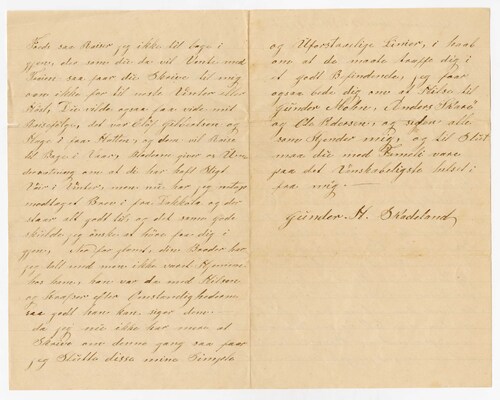 Fode saa Reiser jeg ikke til bage i
gjen, der som du da vil Vente med
saa faar du Skrive til mig
om ikke for til mste Vinter eller
Du vilde ogsaa faa vide mit
det var Oluf Gilbertson og
Hage i faa Hatten, og dem vil Reise
til Bage i Vaar, Moderen giver os
om at de har haft Slegt
Vær i Vinter, men nu har jeg netop
modtaget Brev i fra Dakkota og der
staar alt godt til, og det samme gode
skulde jeg ønske at høre fra dig i
gjen, dine Brøder har
jeg talt med men ikke vaaret Hjemme
hos ham, han var da med Helsen
og efter Omstændighederne
saa godt han kan, siger dem.
da jeg nu ikke har mere at
Skrive om denne gang saa faar
jeg Slutte disse mine Simple
og Uforstaelige Linier, i haab
om at de maate træffe dig i
et godt Befindende, jeg faar
ogsaa bede dig om at Hilse til
Günder Moen, Anders
og Ole Pedersen, og siden alle
som Kjender mig, og til Slut
maa du med Fameli være
paa det Venskabeligste helset i
fra mig.
Günder. H. Skadeland